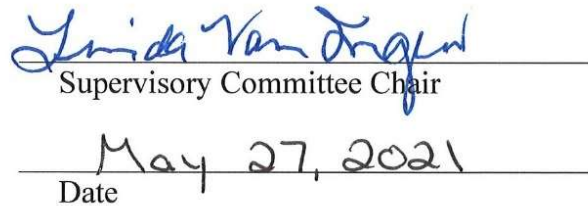 Linda Van Ingen
Supervisory Committee Chair
May 27, 2021
Date